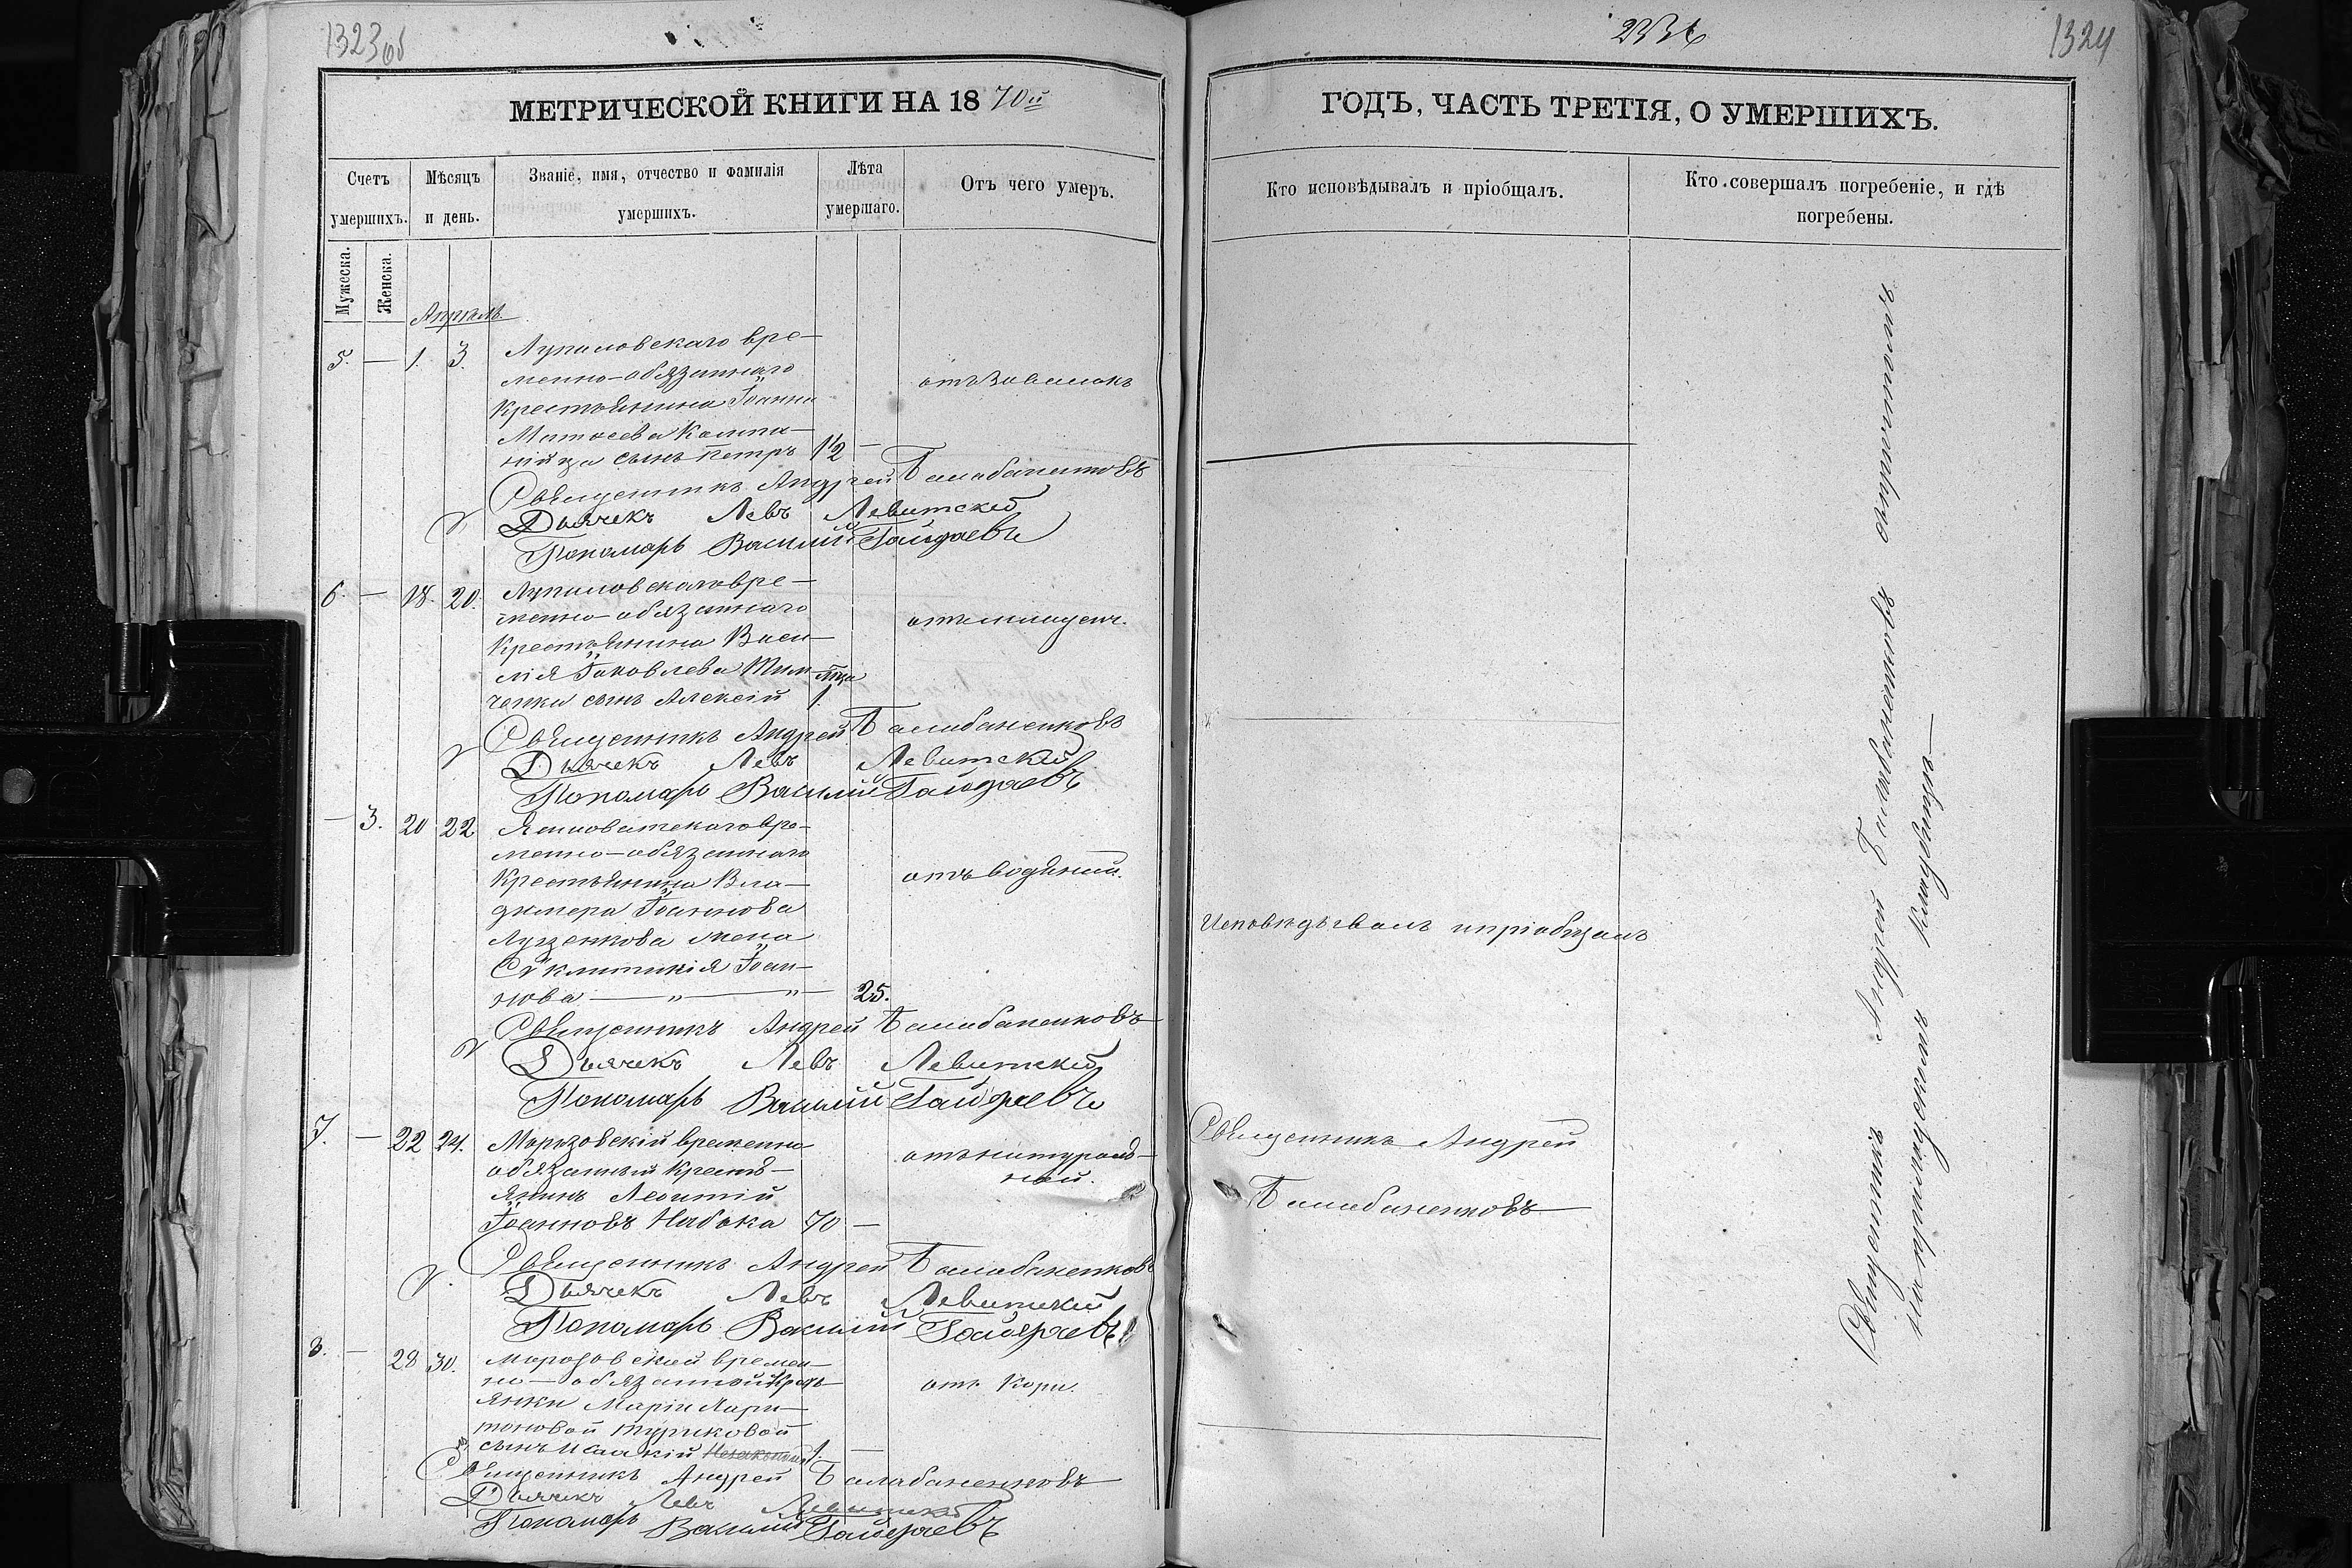 1323 об
МЕТРИЧЕСКОЙ КНИГИ НА 18 70й
Счетъ умершихъ.
Мѣсяцъ и день.
Званіе, имя, отчество и фамилія умершихъ.
Лѣта умершаго.
Отъ чего умеръ.
Мужеска.
Женска.
Апрѣль
5. — 1. 3. Лупиловскаго вре-
менно-обязаннаго
крестьянина Іоанна
Матѳеева
сынъ Петръ 1½ —
отъ
Священникъ Андрей Балабаненковъ
Дьячекъ Левъ Левитскій
Пономарь Василій Гайдаевъ
6. — 18. 20. Лупиловскаго вре-
менно-обязаннаго
крестьянина Васи-
лія Іаковлева Тим-
ченки сынъ Алексій 1.
отъ младен.
Священникъ Андрей Балабаненковъ
Дьячекъ Левъ Левитскій
Пономарь Василій Гайдаевъ
— 3. 20 22 Ясиноватскаго вре-
менно-обязаннаго
крестьянина Вла-
димера Іоаннова
Луценкова жена
Сугклитикія Іоан-
нова — „ — „ — 25.
отъ водяной.
Священникъ Андрей Балабаненковъ
Дьячекъ Левъ Левитскій
Пономарь Василій Гайдаевъ
7. — 22 24. Морозовскій временно
обязанный кресть-
янинъ Леонтій
Іоанновъ Набока 70 —
отъ натураль-
ной.
Священникъ Андрей Балабаненковъ
Дьячекъ Левъ Левитскій
Пономарь Василій Гайдаевъ
8. — 28 30. Морозовской времен-
но-обязанной кресть-
янки Маріи Хари-
тоновой Туриковой
сынъ Исаакій 1. —
отъ кори.
Священникъ Андрей Балабаненковъ
Дьячекъ Левъ Левитскій
Пономарь Василій Гайдаевъ
1324
ГОДЪ, ЧАСТЬ ТРЕТІЯ, О УМЕРШИХЪ.
Кто исповѣдывалъ и пріобщалъ.
Кто совершалъ погребеніе, и гдѣ
погребены.
Исповѣдывалъ и пріобщалъ
Священникъ Андрей
Балабаненковъ
Священникъ Андрей Балабаненковъ съ причтомъ
на приходскомъ кладбищѣ —